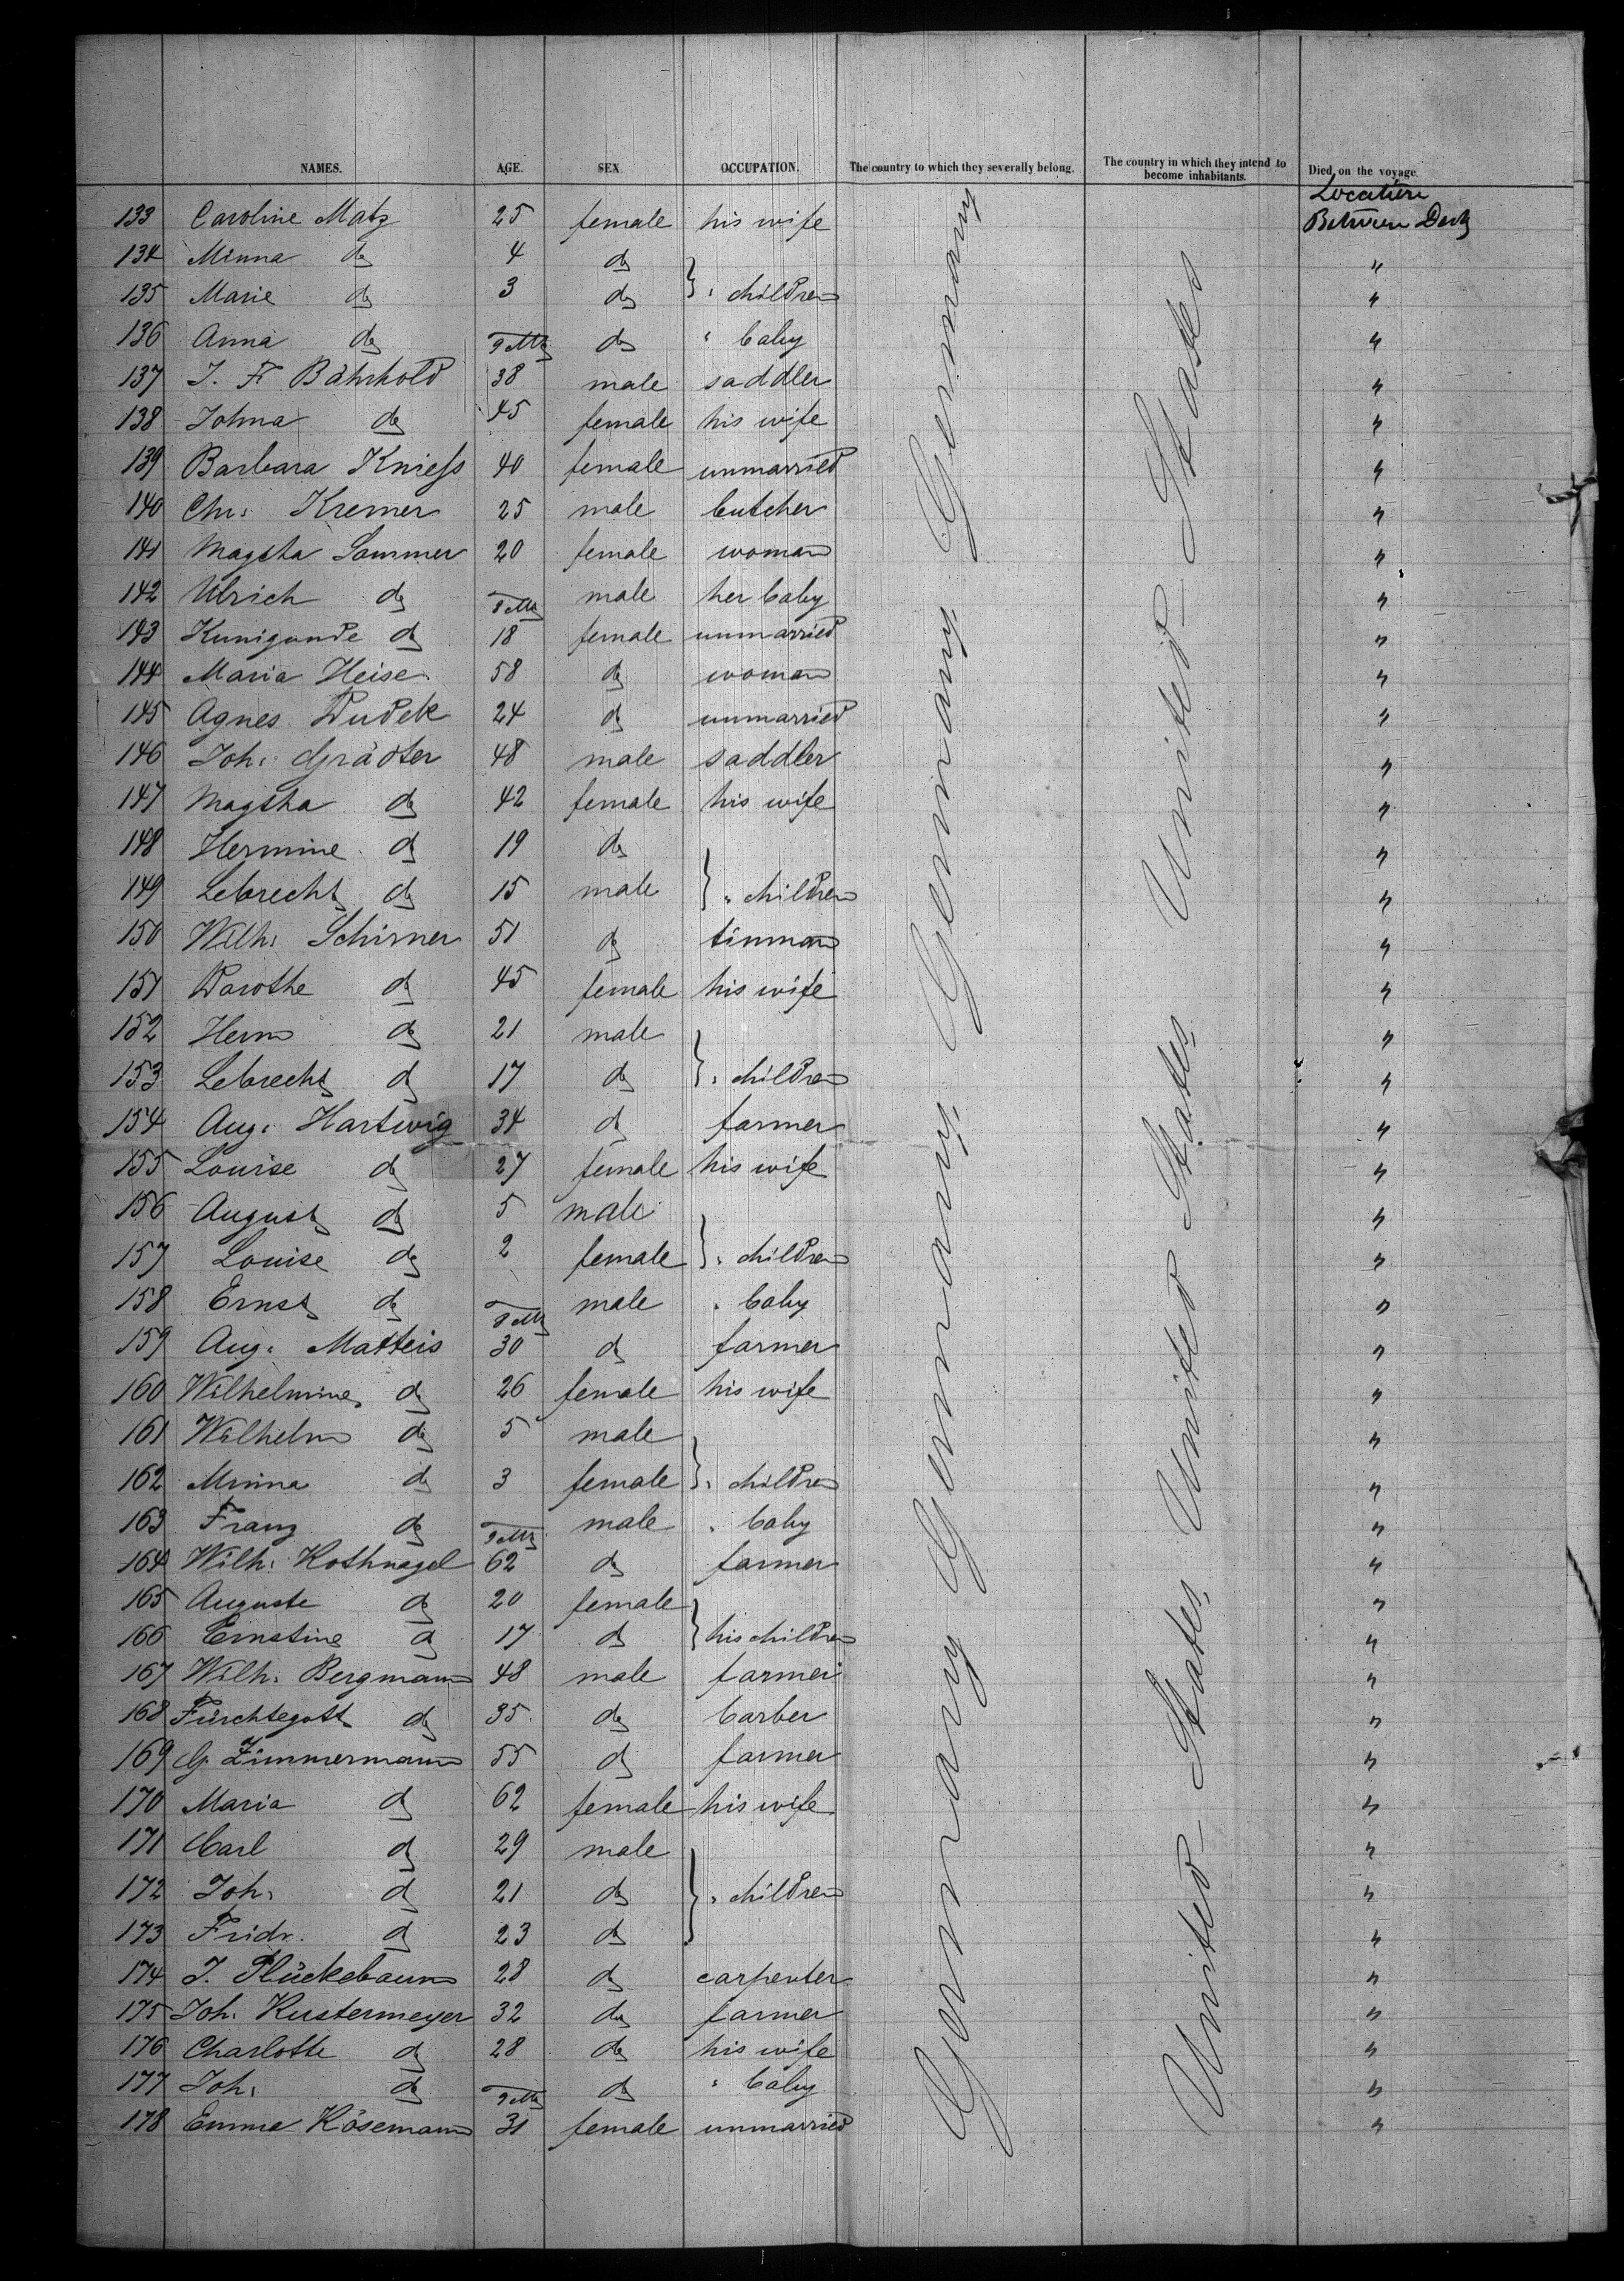 NAMES. AGE. SEX. OCCUPATION. The country to which they severally belong. The country in which they intend to become inhabitants. Died on the voyage.
Location
133 Caroline Matz 25 female his wife Between Deck
134 Minna do 4 do "
135 Marie do 3 do } " children "
136 Anna do 9 Mts do " baby "
137 J. F. Bährhold 38 male saddler "
138 Johna do 45 female his wife "
139 Barbara Kniess 40 female unmarried "
140 Chr: Kremer 25 male butcher "
141 Magtha Sommer 20 female woman "
142 Ulrich do 8 Mts male her baby "
143 Kunigunde do 18 female unmarried "
144 Maria Heise 58 do woman "
145 Agnes Dudek 24 do unmarried "
146 Joh: Grädter 48 male saddler "
147 Magtha do 42 female his wife "
148 Hermine do 19 do "
149 Lebrecht do 15 male } " children "
150 Wilh: Schirner 51 do tinman "
151 Dorothe do 45 female his wife "
152 Herm do 21 male "
153 Lebrecht do 17 do } " children "
154 Aug: Hartwig 34 do farmer "
155 Louise do 27 female his wife "
156 August do 5 male "
157 Louise do 2 female } " children "
158 Ernst do 8 Mts male " baby "
159 Aug: Matteis 30 do farmer "
160 Wilhelmine do 26 female his wife "
161 Wilhelm do 5 male "
162 Minna do 3 female } " children "
163 Franz do 9 Mts male " baby "
164 Wilh: Kothnagel 62 do farmer "
165 Auguste do 20 female "
166 Ernstine do 17 do } his children "
167 Wilh: Bergmann 48 male farmer "
168 Fürchtegott do 35 do barber "
169 G. Zimmermann 55 do farmer "
170 Maria do 62 female his wife "
171 Carl do 29 male "
172 Joh: do 21 do } " children "
173 Fridr. do 23 do "
174 J. Plückebaum 28 do carpenter "
175 Joh: Kustermeyer 32 do farmer "
176 Charlotte do 28 do his wife "
177 Joh: do 9 Mts do " baby "
178 Emma Kösemann 31 female unmarried "
Germany Germany, Germany, Germany
United States United States, United States